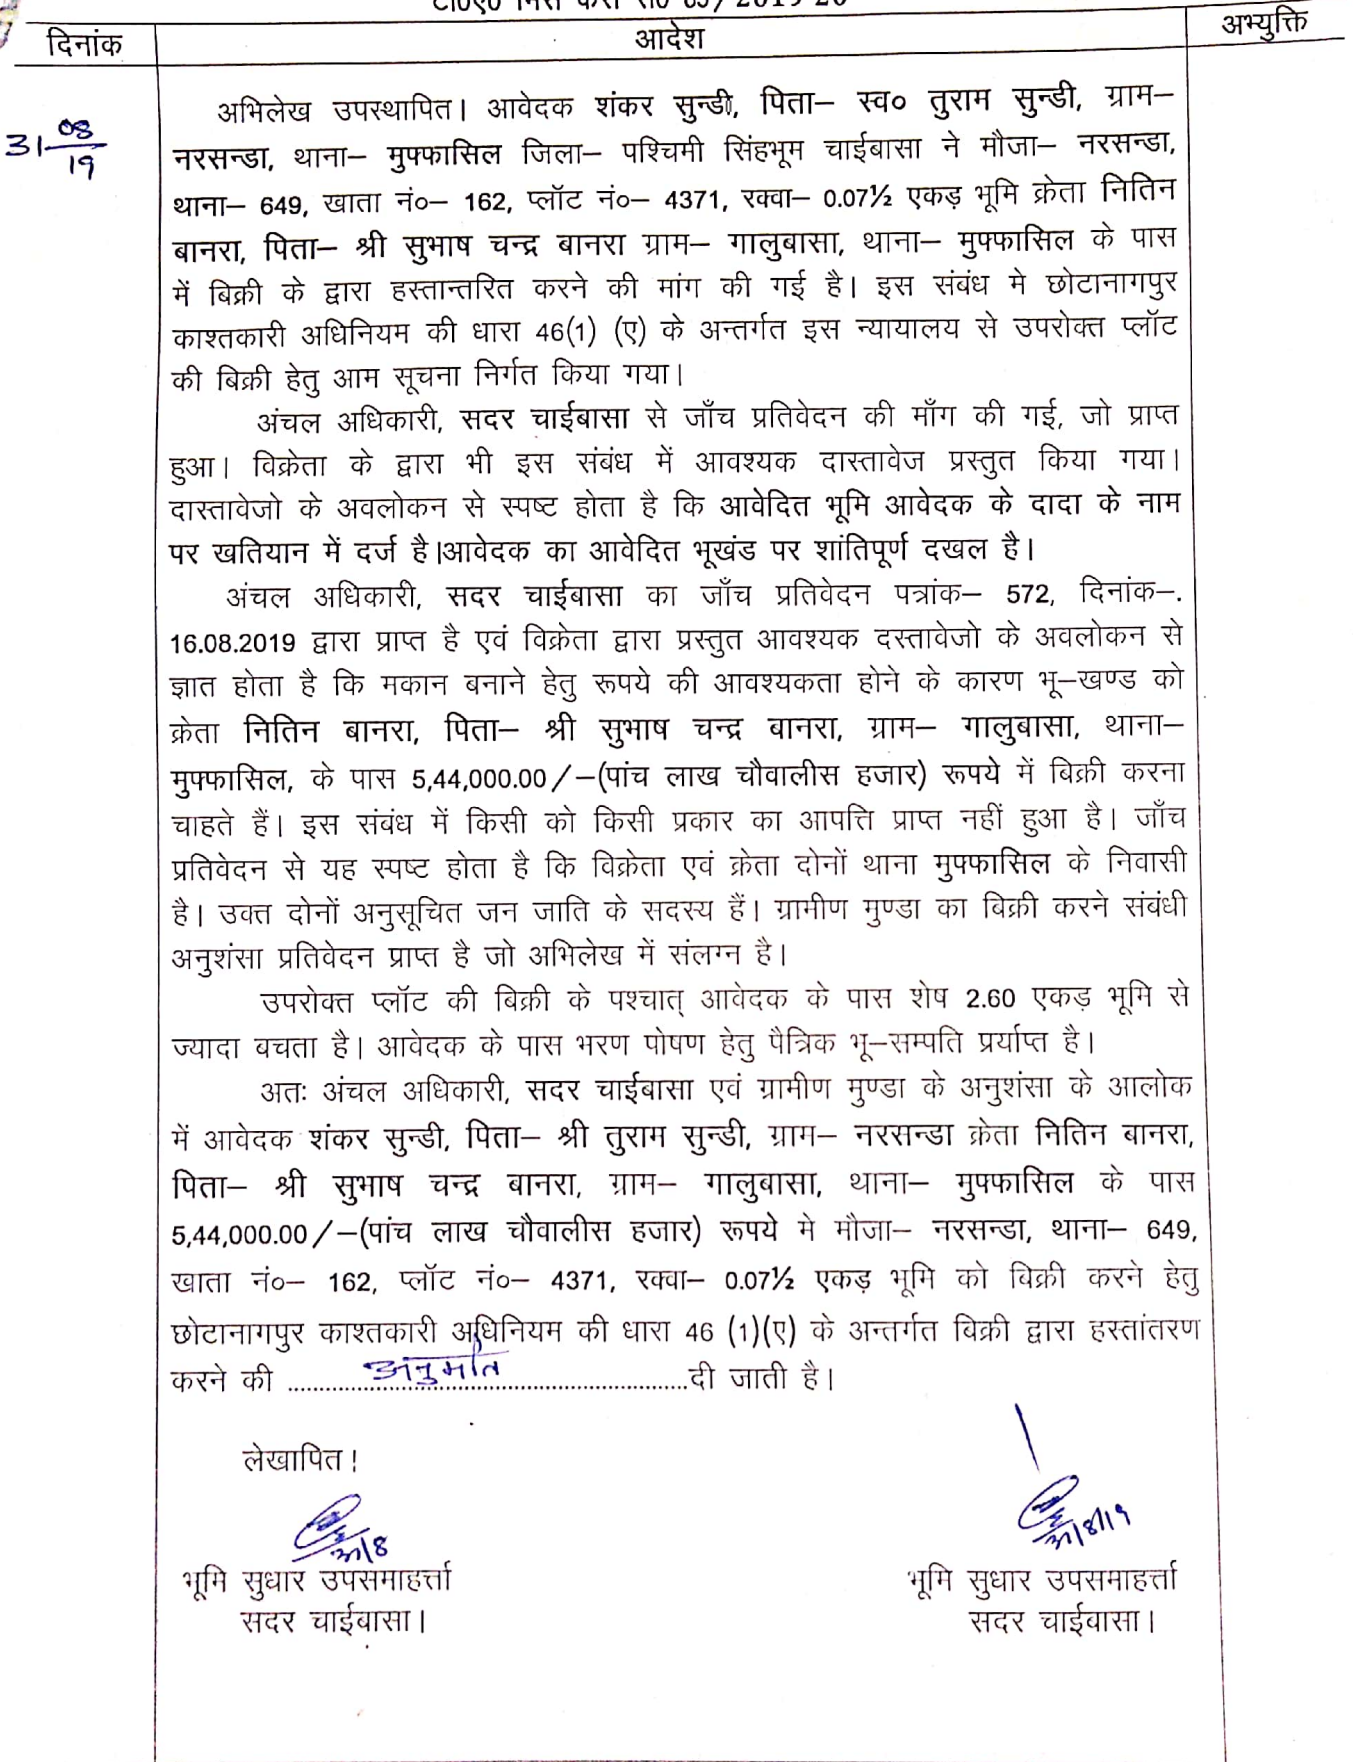 दिनांक
आदेश
अभ्युक्ति
31 08/19
अभिलेख उपस्थापित। आवेदक शंकर सुन्डी, पिता– स्व० तुराम सुन्डी, ग्राम–
नरसन्डा, थाना– मुफ्फासिल जिला– पश्चिमी सिंहभूम चाईबासा ने मौजा– नरसन्डा,
थाना– 649, खाता नं०– 162, प्लॉट नं०– 4371, रक्वा– 0.07½ एकड़ भूमि क्रेता नितिन
बानरा, पिता– श्री सुभाष चन्द्र बानरा ग्राम– गालुबासा, थाना– मुफ्फासिल के पास
में बिक्री के द्वारा हस्तान्तरित करने की मांग की गई है। इस संबंध मे छोटानागपुर
काश्तकारी अधिनियम की धारा 46(1) (ए) के अन्तर्गत इस न्यायालय से उपरोक्त प्लॉट
की बिक्री हेतु आम सूचना निर्गत किया गया।
अंचल अधिकारी, सदर चाईबासा से जाँच प्रतिवेदन की माँग की गई, जो प्राप्त
हुआ। विक्रेता के द्वारा भी इस संबंध में आवश्यक दास्तावेज प्रस्तुत किया गया।
दास्तावेजो के अवलोकन से स्पष्ट होता है कि आवेदित भूमि आवेदक के दादा के नाम
पर खतियान में दर्ज है।आवेदक का आवेदित भूखंड पर शांतिपूर्ण दखल है।
अंचल अधिकारी, सदर चाईबासा का जाँच प्रतिवेदन पत्रांक– 572, दिनांक–.
16.08.2019 द्वारा प्राप्त है एवं विक्रेता द्वारा प्रस्तुत आवश्यक दस्तावेजो के अवलोकन से
ज्ञात होता है कि मकान बनाने हेतु रूपये की आवश्यकता होने के कारण भू–खण्ड को
क्रेता नितिन बानरा, पिता– श्री सुभाष चन्द्र बानरा, ग्राम– गालुबासा, थाना–
मुफ्फासिल, के पास 5,44,000.00/–(पांच लाख चौवालीस हजार) रूपये में बिक्री करना
चाहते हैं। इस संबंध में किसी को किसी प्रकार का आपत्ति प्राप्त नहीं हुआ है। जाँच
प्रतिवेदन से यह स्पष्ट होता है कि विक्रेता एवं क्रेता दोनों थाना मुफ्फासिल के निवासी
है। उक्त दोनों अनुसूचित जन जाति के सदस्य हैं। ग्रामीण मुण्डा का बिक्री करने संबंधी
अनुशंसा प्रतिवेदन प्राप्त है जो अभिलेख में संलग्न है।
उपरोक्त प्लॉट की बिक्री के पश्चात् आवेदक के पास शेष 2.60 एकड़ भूमि से
ज्यादा बचता है। आवेदक के पास भरण पोषण हेतु पैत्रिक भू–सम्पति प्रर्याप्त है।
अतः अंचल अधिकारी, सदर चाईबासा एवं ग्रामीण मुण्डा के अनुशंसा के आलोक
में आवेदक शंकर सुन्डी, पिता– श्री तुराम सुन्डी, ग्राम– नरसन्डा क्रेता नितिन बानरा,
पिता– श्री सुभाष चन्द्र बानरा, ग्राम– गालुबासा, थाना– मुफ्फासिल के पास
5,44,000.00/–(पांच लाख चौवालीस हजार) रूपये मे मौजा– नरसन्डा, थाना– 649,
खाता नं०– 162, प्लॉट नं०– 4371, रक्वा– 0.07½ एकड़ भूमि को बिक्री करने हेतु
छोटानागपुर काश्तकारी अधिनियम की धारा 46 (1)(ए) के अन्तर्गत बिक्री द्वारा हस्तांतरण
करने की ....................अनुमति....................दी जाती है।
लेखापित!
भूमि सुधार उपसमाहर्त्ता
सदर चाईबासा।
भूमि सुधार उपसमाहर्त्ता
सदर चाईबासा।